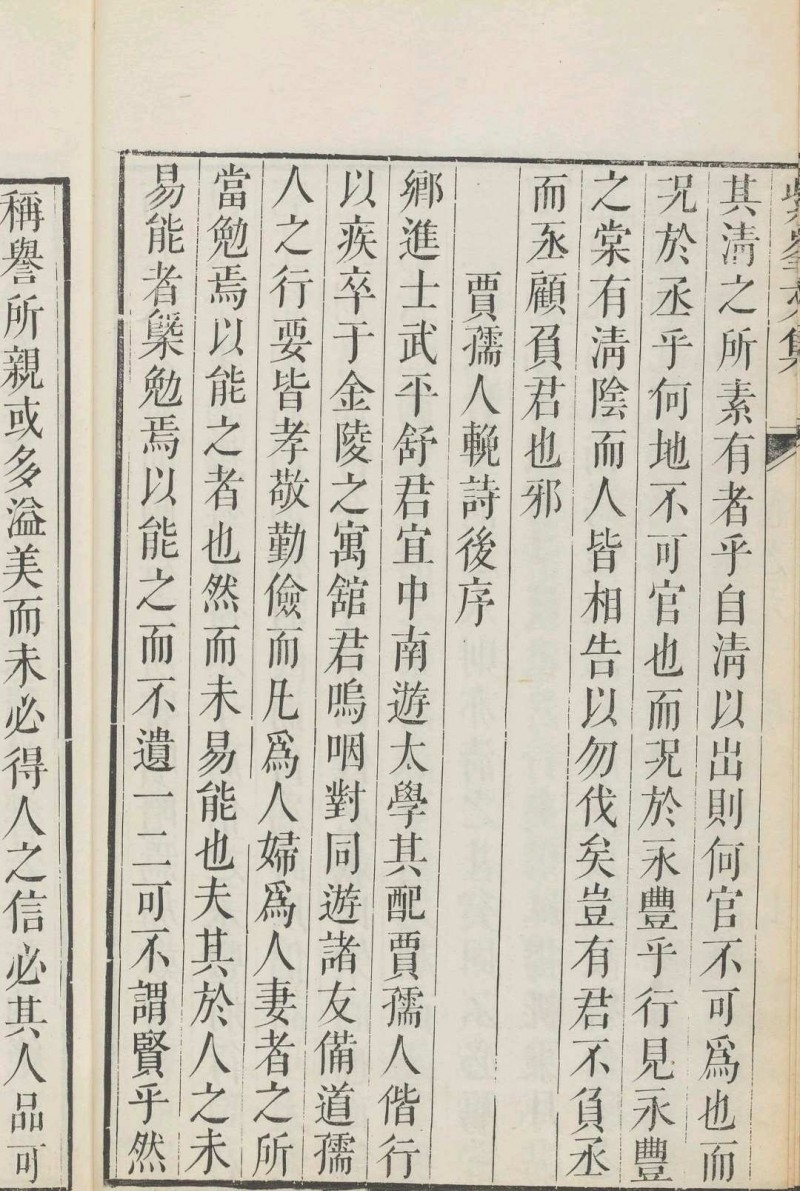 紫峯文集
其淸之所素有者乎自淸以出則何官不可爲也而
况於丞乎何地不可官也而况於永豐乎行見永豐
之棠有淸陰而人皆相告以勿伐矣豈有君不負丞
而丞顧負君也邪
賈孺人輓詩後序
鄉進士武平舒君宜中南遊太學其配賈孺人偕行
以疾卒于金陵之寓舘君嗚咽對同遊諸友備道孺
人之行要皆孝敬勤儉而凡爲人婦爲人妻者之所
當勉焉以能之者也然而未易能也夫其於人之未
易能者槩勉焉以能之而不遺一二可不謂賢乎然
稱譽所親或多溢美而未必得人之信必其人品可